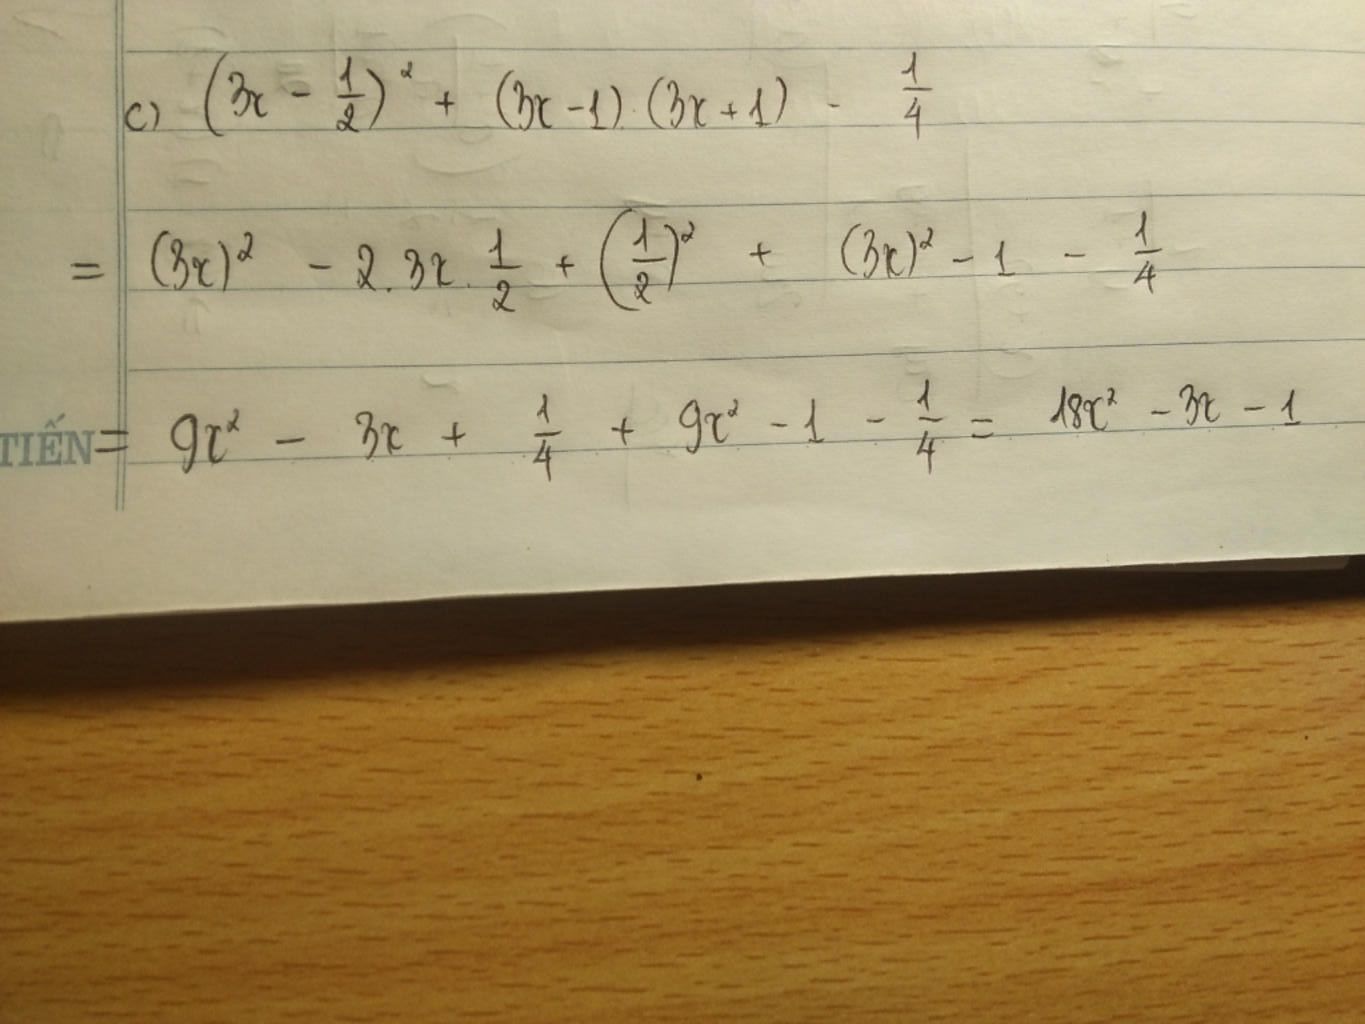 c) (3x - 1/2)² + (3x - 1).(3x + 1) - 1/4
= (3x)² - 2.3x.1/2 + (1/2)² + (3x)² - 1 - 1/4
TIẾN
= 9x² - 3x + 1/4 + 9x² - 1 - 1/4 = 18x² - 3x - 1